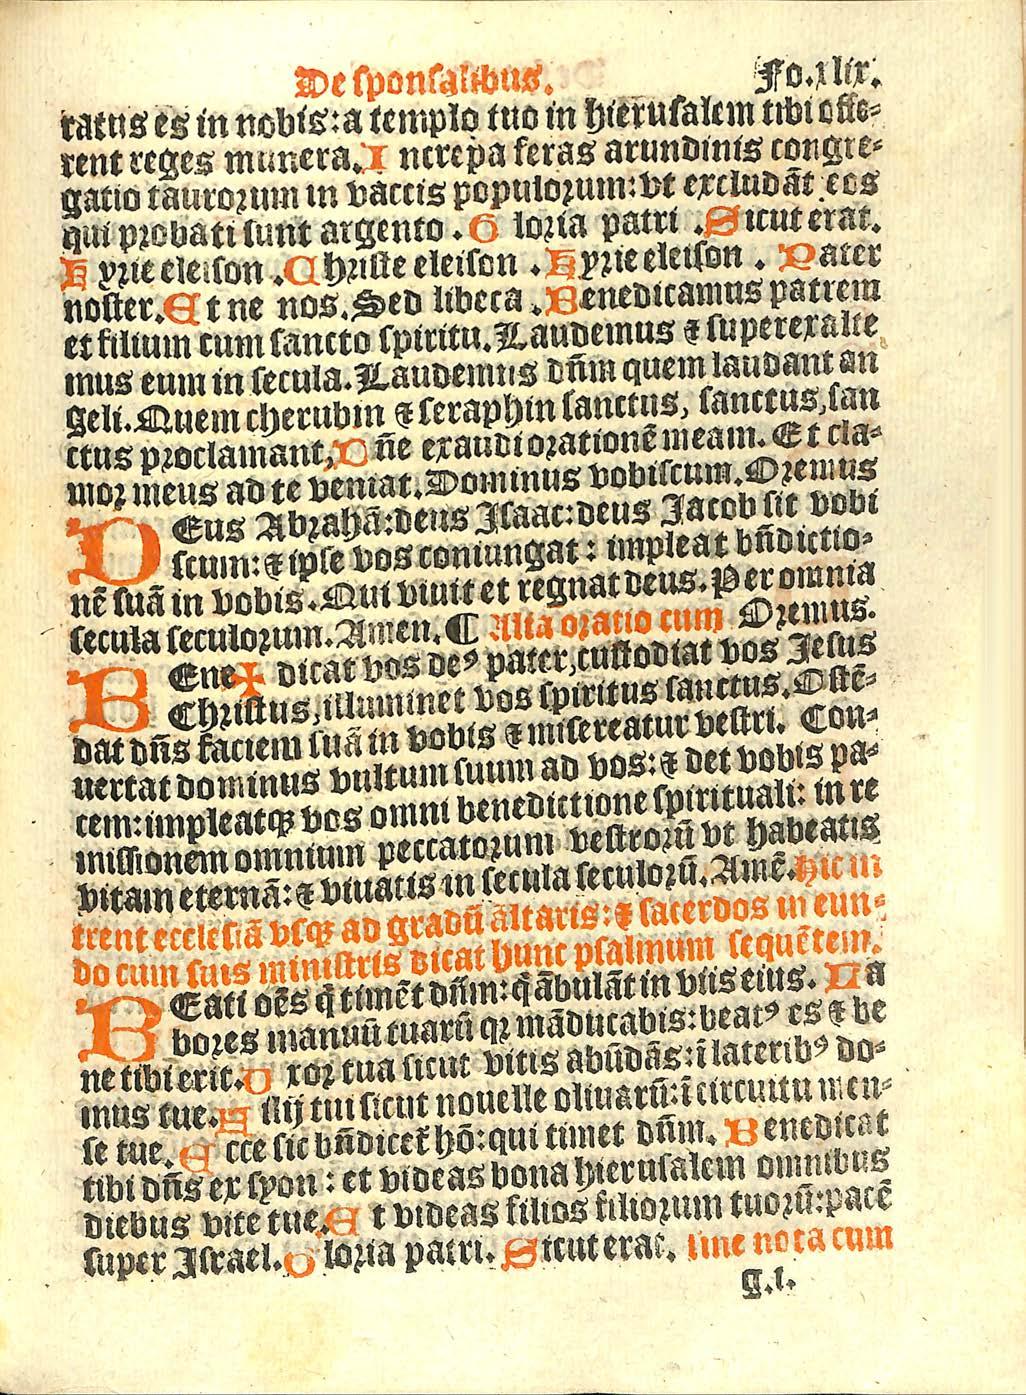 De sponsalibus. Fo.xlix.
ratus es in nobis: a templo tuo in hierusalem tibi offe-
rent reges munera. Increpa feras arundinis congre-
gatio taurorum in vaccis populorum: vt excludāt eos
qui probati sunt argento. Gloria patri. Sicut erat.
Kyrie eleison. Christe eleison. Kyrie eleison. Pater
noster. Et ne nos. Sed libera. Benedicamus patrem
et filium cum sancto spiritu. Laudemus ⁊ superexalte
mus eum in secula. Laudemus dñm quem laudant an
geli. Quem cherubin ⁊ seraphin sanctus, sanctus, san
ctus proclamant, Dñe exaudi orationē meam. Et cla-
mor meus ad te veniat. Dominus vobiscum. Oremus
DEus Abrahā: deus Isaac: deus Jacob sit vobi
scum: ⁊ ipse vos coniungat: impleat bñdictio-
nē suā in vobis. Qui viuit et regnat deus. Per omnia
secula seculorum. Amen. ¶ Alia oratio cum Oremus.
BEne✠dicat vos deꝰ pater, custodiat vos Jesus
Christus, illuminet vos spiritus sanctus. Ostē-
dat dñs faciem suā in vobis ⁊ misereatur vestri. Con-
uertat dominus vultum suum ad vos: ⁊ det vobis pa-
cem: impleatqꝫ vos omni benedictione spirituali: in re
missionem omnium peccatorum vestrorū vt habeatis
vitam eternā: ⁊ viuatis in secula seculorū. Amē. Hic in
trent ecclesiā vsqꝫ ad gradū altaris: ⁊ sacerdos in eun-
do cum suis ministris dicat hunc psalmum sequētem.
BEati oēs q̄ timēt dñm: q̄ ābulāt in viis eius. La
bores manuū tuarū qꝛ māducabis: beatꝰ es ⁊ be
ne tibi erit. Uxor tua sicut vitis abūdās: ī lateribꝰ do-
mus tue. Filij tui sicut nouelle oliuarū: ī circuitu men-
se tue. Ecce sic bñdicet̄ hō: qui timet dñm. Benedicat
tibi dñs ex syon: et videas bona hierusalem omnibus
diebus vite tue. Et videas filios filiorum tuorū: pacē
super Israel. Gloria patri. Sicut erat. sine nota cum
g.i.